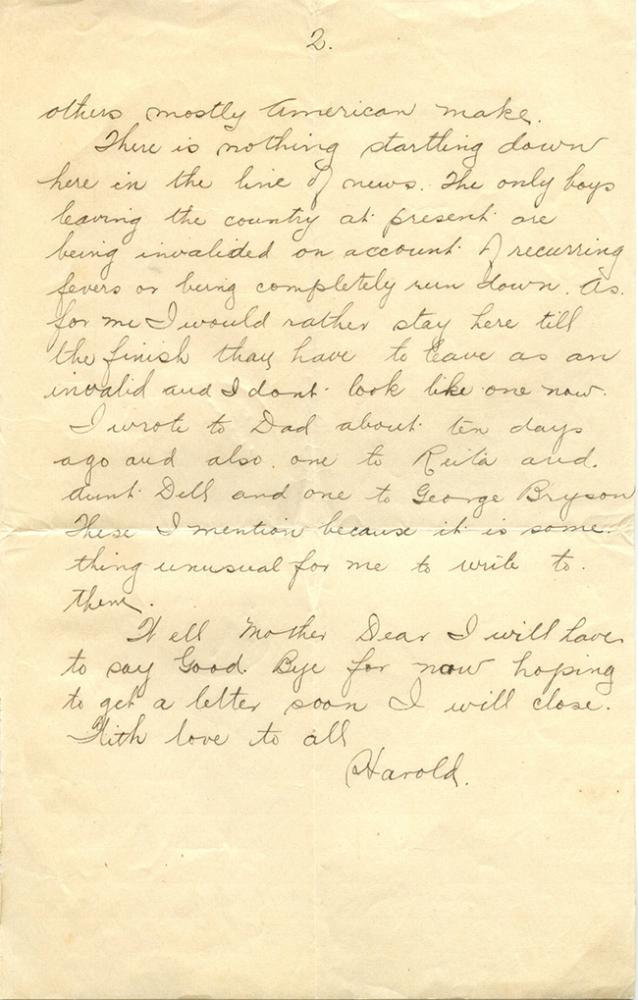 2.
others mostly American make.
There is nothing startling down
here in the line of news. The only boys
leaving the country at present are
being invalided on account of recurring
fevers or being completely run down. As
for me I would rather stay here till
the finish than have to leave as an
invalid and I dont look like one now.
I wrote to Dad about ten days
ago and also one to Reita and
Aunt Dell and one to George Bryson
These I mention because it is some
thing unusual for me to write to
them.
Well Mother Dear I will have
to say Good Bye for now hoping
to get a letter soon I will close.
With love to all
Harold.